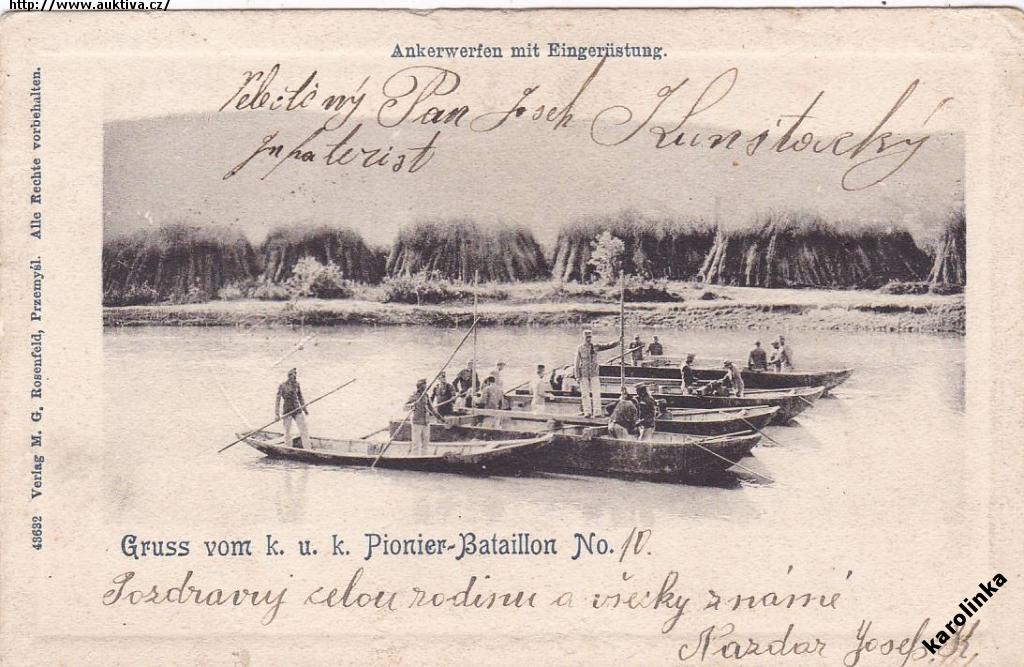 http://www.auktiva.cz/
Ankerwerfen mit Eingerüstung.
Velectěný Pan Josef Kunstacký
Infaterist
43632 Verlag M. G. Rosenfeld, Przemyśl. Alle Rechte vorbehalten.
Gruss vom k. u. k. Pionier-Bataillon No. 10.
Pozdravuj celou rodinu a všecky známé
Nazdar Josef K.
karolinka